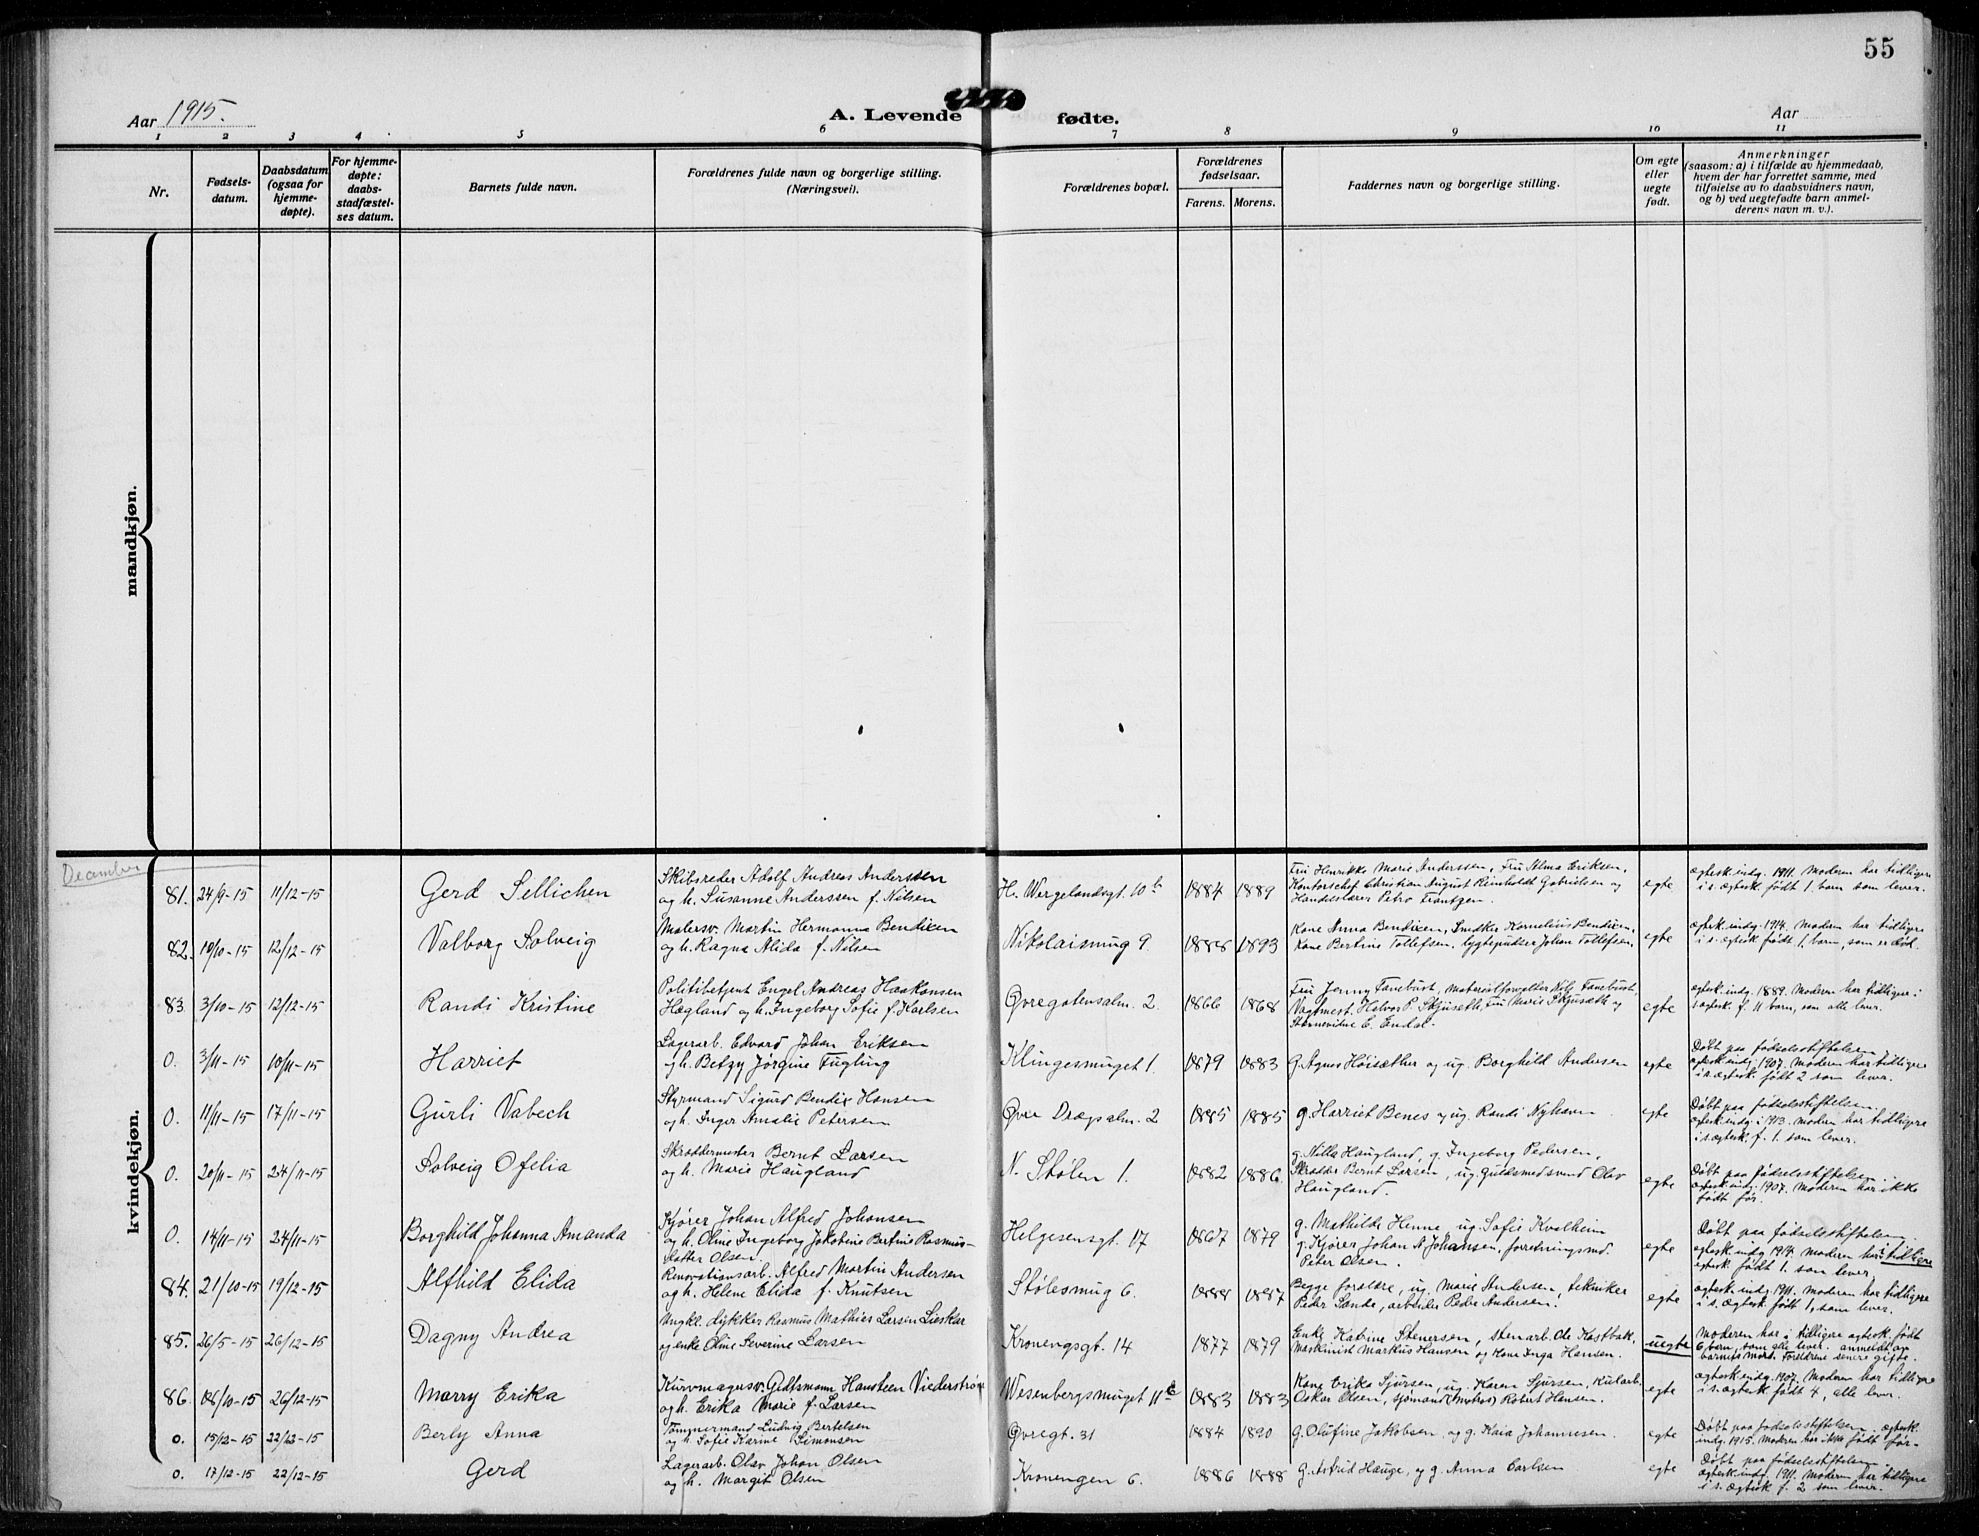 55
Aar 1915.
A. Levende fødte.
Aar
1 2 3 4 5 6 7 8 9 10 11
Nr.
Fødsels-
datum.
Daabsdatum
(ogsaa for
hjemme-
døpte).
For hjemme-
døpte:
daabs-
stadfæstel-
ses datum.
Barnets fulde navn.
Forældrenes fulde navn og borgerlige stilling.
(Næringsvei).
Forældrenes bopæl.
Forældrenes
fødselsaar.
Farens. Morens.
Faddernes navn og borgerlige stilling.
Om egte
eller
uegte
født.
Anmerkninger
(saasom: a) i tilfælde av hjemmedaab,
hvem der har forrettet samme, med
tilføielse av to daabsvidners navn,
og b) ved uegtefødte barn anmel-
derens navn m. v.).
mandkjøn.
kvindekjøn.
December
81. 24/9-15 11/12-15 Gerd Sellichen
Skibsreder Adolf Andreas Anderssen
og h. Susanne Anderssen f. Nilsen
H. Wergelandsgt. 10 b 1884 1889
Fru Henrikke Marie Anderssen, Fru Alma Eriksen,
Kontorschef Christian August Reinholdt Gabrielsen og
Handelslærer Petro Frantzen.
egte
egtesk. indg. 1911. Moderen har tidligere
i s. egtesk. født 1 barn som lever.
82. 10/10-15 12/12-15 Valborg Solveig
Malersv. Martin Hermanna Bendixen
og h. Ragna Alida f. Nilsen
Nikolaismug 9. 1888 1893
Kone Anna Bendixen, Smed Kornelius Bendixen,
Kone Bertine Tollefsen, lygtepudser Johan Tollefsen.
egte
egtesk. indg. 1914. Moderen har tidligere
i s. egtesk. født 1 barn, som er død.
83. 3/10-15 12/12-15 Randi Kristine
Politibetjent Engel Andreas Haakonsen
Hægland og h. Ingeborg Sofie f. Karlsen
Øvregatensalm. 2. 1866 1868
Fru Jenny Tanebust, Materialforvalter Nils Tanebust,
Vagtmest. Helvor P. Skjuseth, Fru Marie Skjusæth og
Størnevitne E. Endal.
egte
egtesk. indg. 1889. Moderen har tidligere i
s. egtesk. f. 11 barn, som alle lever.
0. 3/11-15 10/11-15 Harriet
Lagerarb. Edvard Johan Eriksen
og h. Betzy Jørgine Fugling
Klingesmuget 1. 1879 1883
g. Agnes Høisæther og ug. Borghild Andersen
egte
Døbt paa fødselsstiftelsen
egtesk. indg. 1907. Moderen har tidligere
i s. egtesk. født 2 som lever.
0. 11/11-15 17/11-15 Gurli Vabech
Styrmand Sigurd Bendix Hansen
og h. Inger Amalie Petersen
Øvre Drægsalm. 2 1885 1885
g. Harriet Benes og ug. Randi Nyhavn.
egte
Døbt paa fødselsstiftelsen.
egtesk. indg. i 1913. Moderen har tidligere
i s. egtesk. f. 1. som lever.
0. 20/11-15 24/11-15 Solveig Ofelia
Skræddermester Bernt Larsen
og h. Marie Haugland
N. Stølen 1. 1882 1886
g. Nilla Haugland, g. Ingeborg Pedersen,
Skrædder Bernt Larsen, ug. guldsmedsvend Olav
Haugland.
egte
Døbt paa fødselsstiftelsen.
egtesk. indg. 1907. Moderen har ikke
født før.
0. 14/11-15 24/11-15 Borghild Johanna Amanda
Kjører Johan Alfred Johansen
og h. Oline Ingeborg Jakobine Bertine Rasmus-
datter Olsen
Helgesensgt. 17 1867 1879
g. Mathilde Henne, ug. Sofie Kvalheim
g. Kjører Johan N. Johansen, forretningsmd.
Peter Olsen.
egte
Døbt paa fødselsstiftelsen.
egtesk. indg. 1914. Moderen har i tidligere
egtesk. født 1. som lever.
84. 21/10-15 19/12-15 Alfhild Elida
Renovationsarb. Alfred Martin Andersen
og h. Helene Elida f. Knutsen
Stølesmug 6. 1888 1887
Begge forældre, ug. Marie Andersen, tekniker
Peder Sande, arbeider Peder Andersen.
egte
egtesk. indg. 1911. Moderen har tidligere
i s. egtesk. født 1, som lever.
85. 26/5-15 26/12-15 Dagny Andrea
Ungkl. dykker Rasmus Mathias Larsen Lieskar
og enke Oline Severine Larsen
Kronengsgt. 14 1877 1879
Enke Katrine Stenersen, stenarb. Ole Kastbak,
Maskinist Markus Hansen og Kone Inga Hansen.
uegte
Moderen har i tidligere egtesk. født
6 barn, som alle lever. anmeldt av
barnets mor. Foreldrene senere gifte.
86. 08/10-15 26/12-15 Marry Erika
Kurvmagersv. Gidtsmann Hansteen Viederstrøm
og h. Erika Marie f. Larsen
Wesenbergsmuget 11 b 1883 1883
Kone Erika Sjursen, ug. Karen Sjursen, Kularb.
Oskar Olsen, sjømand (matros) Robert Hansen.
egte
egtesk. indg. 1907. Moderen har tidligere
i s. egtesk. født 4, alle lever.
0. 15/12-15 22/12-15 Berly Anna
Tømmermand Ludvig Bertelsen
og h. Sofie Karine Simonsen
Øvregt. 31 1884 1890
g. Olufine Jakobsen, og g. Kaia Johannesen.
egte
Døbt paa fødselsstiftelsen. egtesk.
indg. 1915. Moderen har ikke født før.
0. 17/12-15 22/12-15 Gerd
Lagerarb. Olav Johan Olsen
og h. Margit Olsen
Kronengen 6. 1886 1888
g. Astrid Hauge, og g. Anna Carlsen
egte
Døbt paa fødselsstiftelsen.
egtesk. indg. 1911. Moderen har tidligere
i s. egtesk. f. 2 som lever.